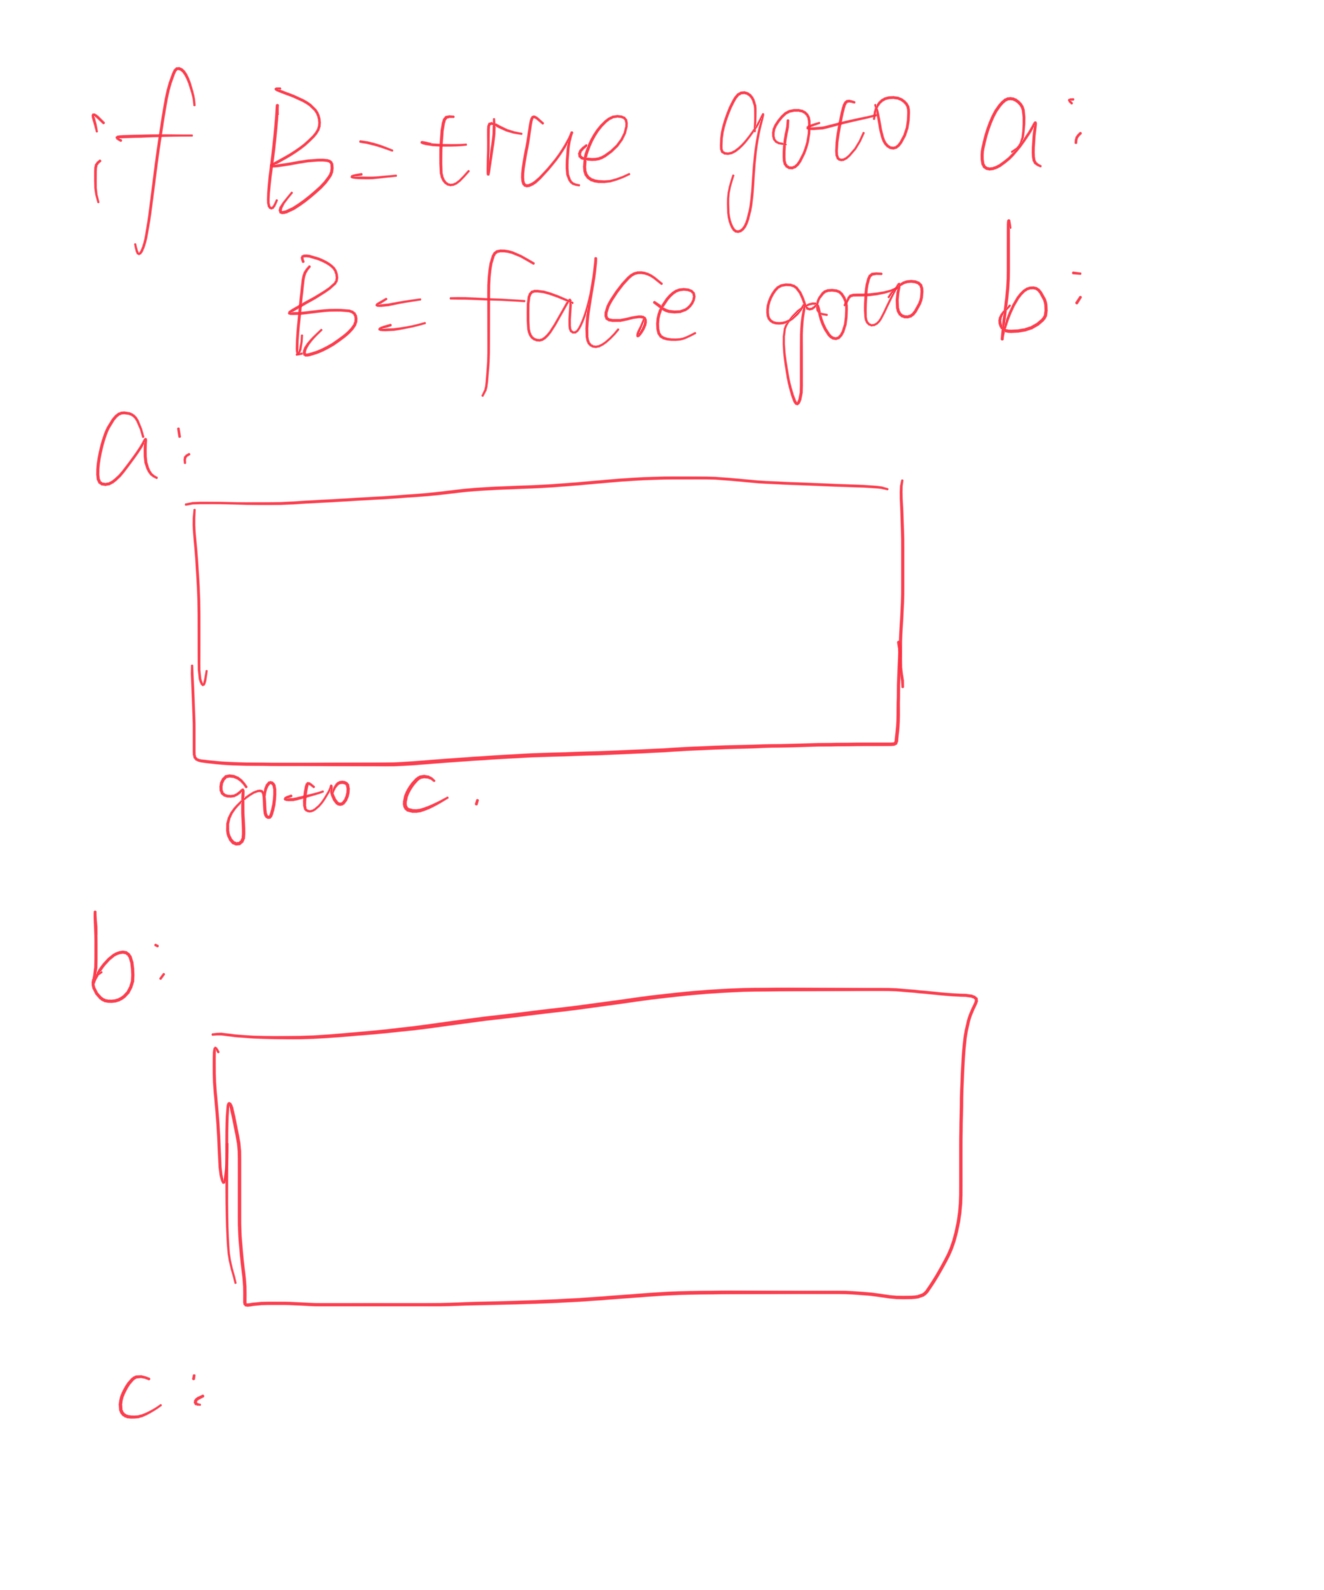 if B=true goto a:
B=false goto b:
a:
goto c.
b:
c: